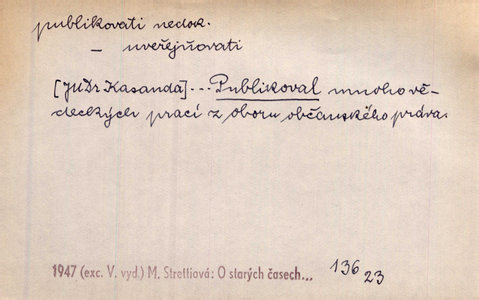 publikovati nedok.
– uveřejňovati
[JUDr Kasanda]... Publikoval mnoho vě-
deckých prací z oboru občanského práva.
1947 (exc. V. vyd.) M. Strettiová: O starých časech... 136 23